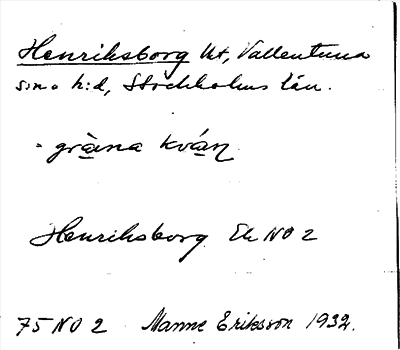 Henriksborg Ut, Vallentuna
sn o h:d, Stockholms län.
- gràna kván
Henriksborg Ek NO 2
75 NO 2 Manne Eriksson 1932.